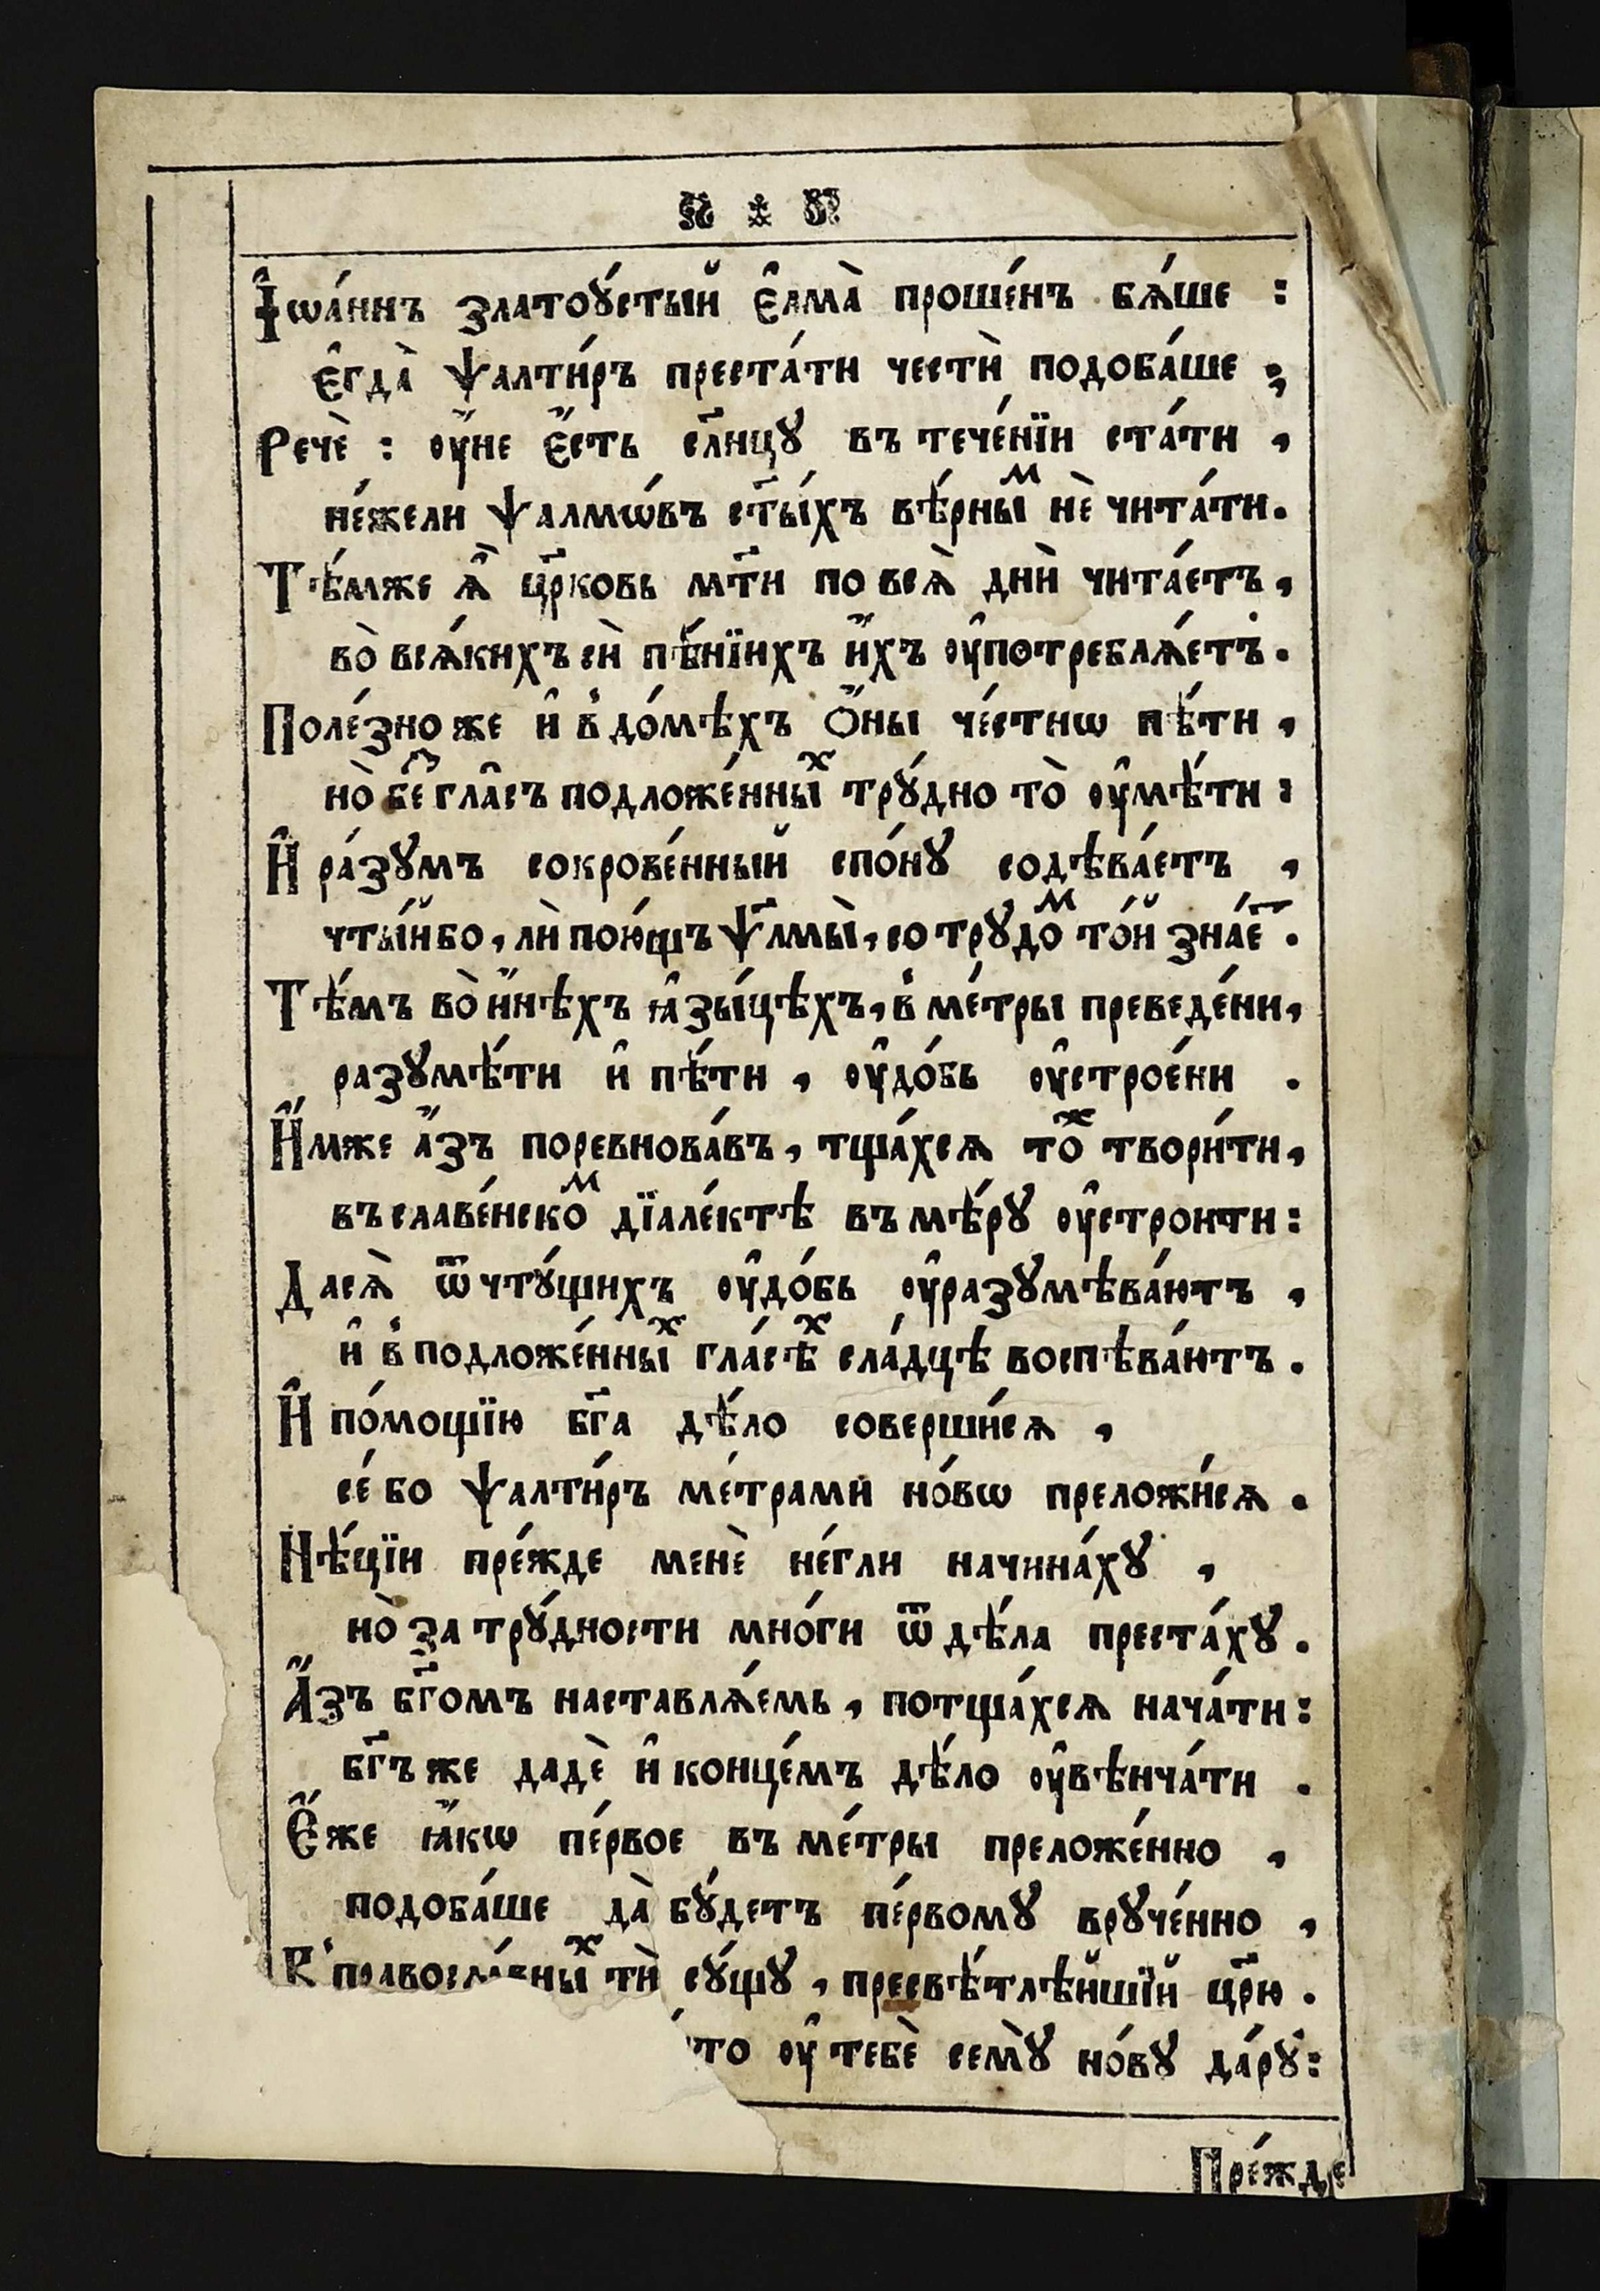 І҆ѡа́ннъ златоꙋ́стый є҆лма̀ проше́нъ бѧ́ше :
є҆гда̀ ѱалти́рь преста́ти честѝ подоба́ше ;
Речѐ : ᲂу҆́не є҆́сть сл҃нцꙋ въ тече́нїи ста́ти ,
не́жели ѱалмѡ́въ ст҃ы́хъ вѣ́рныⷨ нѐ чита́ти.
Тѣ́мже ѧ҆̀ цр҃ковь мт҃и по всѧ̀ днѝ чита́етъ ,
во̀ всѧ́кихъ сѝ пѣ́нїихъ и҆́хъ ᲂу҆потреблѧ́етъ.
Поле́зно же и҆ в̾ до́мѣхъ Ѻ҆́ны че́стнѡ пѣ́ти ,
но̀ беⷥ гла̑съ подложе́нныⷯ трꙋ́дно то̀ ᲂу҆мѣ́ти :
И҆ ра́зꙋмъ сокрове́нный спо́нꙋ содѣва́етъ ,
чты́йбо , лѝ пою́щъ ѱ҃лмы̀ , со трꙋдоⷨ то́й зна́еⷮ .
Тѣ́мъ во̀ и҆́нѣхъ ꙗ҆зы́цѣхъ , в̾ ме́тры преведе́ни ,
разꙋмѣ́ти и҆ пѣ́ти , ᲂу҆до́бь ᲂу҆строе́ни .
И҆́мже а҆́зъ поревнова́въ , тща́хсѧ тоⷤ твори́ти ,
въ славе́нскоⷨ дїале́ктѣ въ мѣ́рꙋ ᲂу҆строити :
Да сѧ̀ ѿ чтꙋ́щихъ ᲂу҆до́бь ᲂу҆разꙋмѣва́ютъ ,
и҆ в̾ подложе́нныⷯ гла́сѣⷯ сла́дцѣ воспѣва́ютъ .
И҆ по́мощїю бг҃а дѣ́ло соверши́сѧ ,
се́ бо ѱалти́рь ме́трами но́вѡ преложи́сѧ .
Нѣ́цїи пре́жде менѐ не́гли начина́хꙋ ,
но̀ за трꙋ́дности мно́ги ѿ дѣ́ла преста́хꙋ .
А҆́зъ бг҃омъ наставлѧ́емь , потща́хсѧ нача́ти :
бг҃ъ же дадѐ и҆ конце́мъ дѣ́ло ᲂу҆вѣнча́ти .
Є҆́же ꙗ҆́кѡ пе́рвое въ ме́тры преложе́нно ,
подоба́ше да̀ бꙋ́детъ пе́рвомꙋ врꙋче́нно ,
В̾ правосла́вныⷯ тѝ сꙋ́щꙋ , пресвѣ́тлѣйшїй цр҃ю .
то ᲂу҆ тебѐ семꙋ̀ но́вꙋ да́рꙋ :
Пре́жде